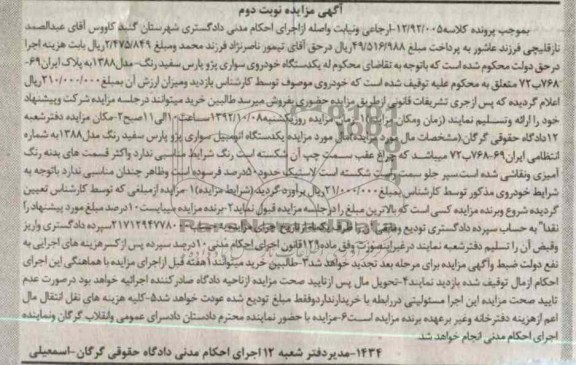 آگهی مزایده نوبت دوم
بموجب پرونده کلاسه ۱۲/۹۲/۰۰۵-ارجاعی ونیابت واصله ازاجرای احکام مدنی دادگستری شهرستان گنبد کاووس آقای عبدالصمد
نازقلیچی فرزند عاشور به پرداخت مبلغ ۴۹/۵۱۶/۹۸۸ریال درحق آقای تیمور ناصرنژاد فرزند محمد ومبلغ ۲/۴۷۵/۸۴۹ریال بابت هزینه اجرا
درحق دولت محکوم شده است که باتوجه به تقاضای محکوم له یکدستگاه خودروی سواری پژو پارس سفید رنگ-مدل۱۳۸۸به پلاک ایران۶۹-
۷۶۸ب۷۲ متعلق به محکوم علیه توقیف شده است که خودروی موصوف توسط کارشناس بازدید ومیزان ارزش آن بمبلغ۲۱۰/۰۰۰/۰۰۰ریال
اعلام گردیده که پس ازجری تشریفات قانونی ازطریق مزایده حضوری بفروش میرسد طالبین خرید میتوانند درجلسه مزایده شرکت وپیشنهاد
خود را ارائه وتسلیم نمایند (زمان ومکان مزایده)۱-زمان مزایده روزیکشنبه ۱۳۹۲/۱۰/۰۸ساعت۱۰الی۱۱صبح۲-مکان مزایده دفترشعبه
۱۲دادگاه حقوقی گرگان(مشخصات مال مورد مزایده)مال مورد مزایده یکدستگاه اتومبیل سواری پژو پارس سفید رنگ مدل۱۳۸۸به شماره
انتظامی ایران۶۹-۷۶۸ب۷۲ میباشد که چراغ عقب سمت چپ آن شکسته است رنگ شرایط مناسبی ندارد واکثر قسمت های بدنه رنگ
آمیزی ونقاشی شده است سپر جلو سمت راست شکسته است لاستیک حدود۵۰درصد فرسوده است وظاهر چندان مناسبی ندارد باتوجه به
شرایط خودروی مذکور توسط کارشناس بمبلغ۲۱۰/۰۰۰/۰۰۰ریال برآورد گردید(شرایط مزایده)۱-مزایده ازمبلغی که توسط کارشناس تعیین
گردیده شروع وبرنده مزایده کسی است که بالاترین مبلغ را درجلسه مزایده قبول نماید۲-برنده مزایده میبایست۱۰درصد مبلغ مورد پیشنهاد را
نقدا" به حساب سپرده دادگستری تودیع ومابقی ظرف یکماه ازتاریخ اجرای مزایده به حساب ۲۱۷۱۲۹۴۷۷۸۰ سپرده دادگستری واریز
وقبض آن را تسلیم دفترشعبه نمایند درغیراینصورت وفق ماده۱۲۹قانون اجرای احکام مدنی ۱۰درصد سپرده پس ازکسرهزینه های اجرایی به
نفع دولت ضبط وآگهی مزایده برای مرحله بعد تجدید خواهد شد۳-طالبین خرید میتوانند۱هفته قبل ازاجرای مزایده با هماهنگی این اجرای
احکام ازمال توقیف شده بازدید نمایند۴-تحویل مال پس ازتایید صحت مزایده ازناحیه دادگاه صادرکننده اجرائیه خواهد بود درصورت عدم
تایید صحت مزایده این اجرا مسئولیتی دررابطه با خریدارندارد وفقط مبلغ تودیع شده عودت خواهد شد۵-کلیه هزینه های نقل انتقال مال
اعم ازهزینه دفترخانه وغیر برعهده برنده مزایده است۶-مزایده با حضور نماینده محترم دادستان دادسرای عمومی وانقلاب گرگان ونماینده
اجرای احکام مدنی انجام خواهد شد.
۱۴۳۴-مدیردفتر شعبه ۱۲ اجرای احکام مدنی دادگاه حقوقی گرگان-اسمعیلی